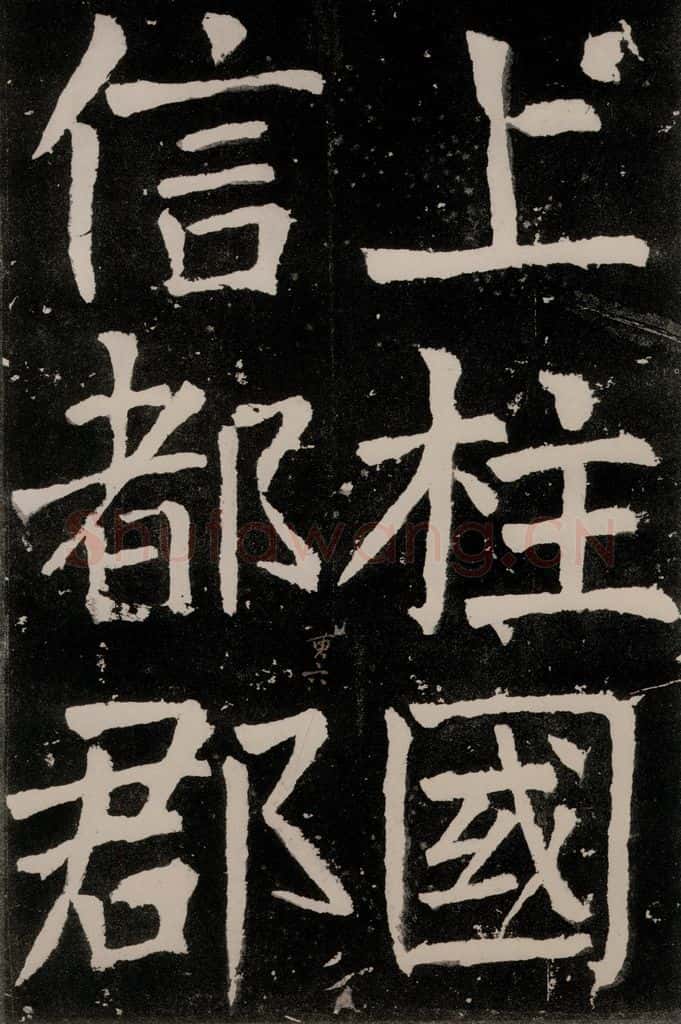 上柱國
信都郡
Shufawang.CN